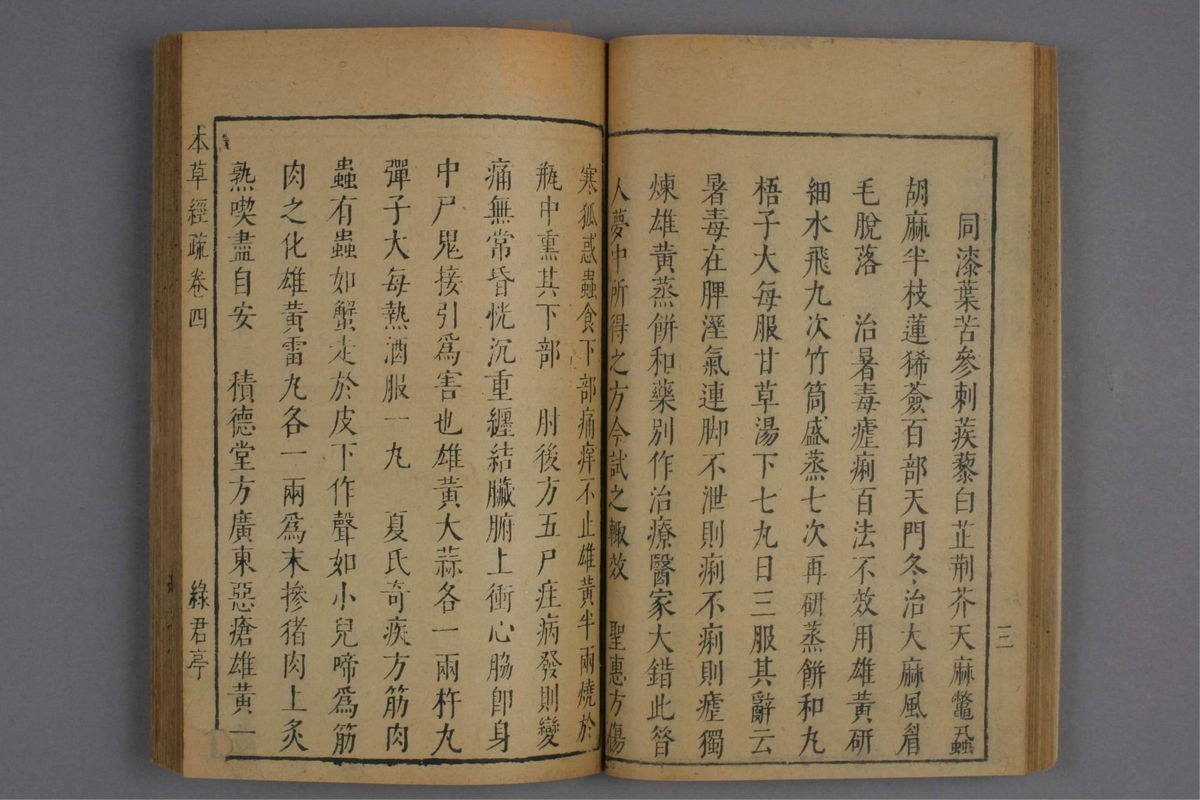 三
同漆葉苦參刺蒺藜白芷荆芥天麻鱉虱
胡麻半枝蓮豨薟百部天門冬治大麻風眉
毛脫落 治暑毒瘧痢百法不效用雄黃研
細水飛九次竹筒盛蒸七次再硏蒸餠和丸
梧子大每服甘草湯下七丸日三服其辭云
暑毒在脾溼氣連脚不泄則痢不痢則瘧獨
煉雄黃蒸餠和藥別作治療醫家大錯此皆
人夢中所得之方今試之輒效 聖惠方傷
寒狐惑蟲食下部痛痒不止雄黃半兩燒於
瓶中熏其下部 肘後方五尸疰病發則變
痛無常昏恍沉重纒結臟腑上衝心脇卽身
中尸鬼接引爲害也雄黃大蒜各一兩杵丸
彈子大每熱酒服一丸 夏氏奇疾方筋肉
蟲有蟲如蟹走於皮下作聲如小兒啼爲筋
肉之化雄黃雷丸各一兩爲末摻猪肉上炙
熟喫盡自安 積德堂方廣東惡瘡雄黃一
本草經疏卷四 綠君亭